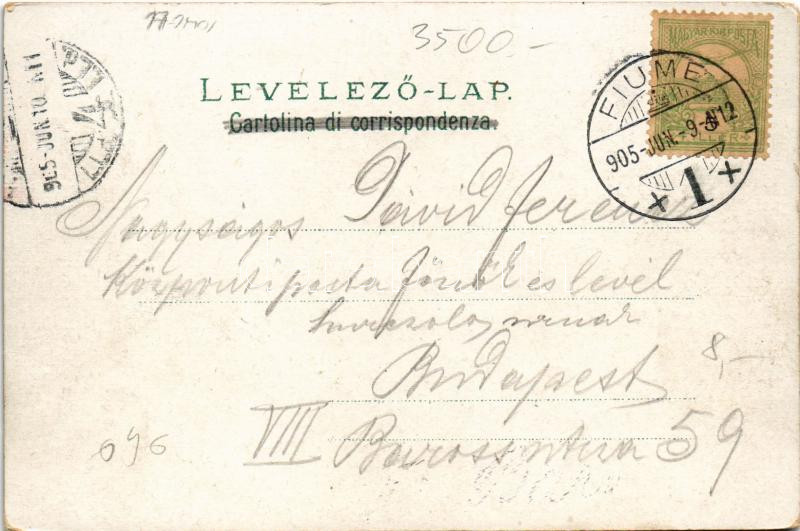 3500.-
LEVELEZŐ-LAP.
Cartolina di corrispondenza.
MAGYAR KIR. POSTA
FIUME
905-JUN.-9-N12
1
905-JUN.10
Nagyságos Dávid Ferencz
Központi posta főnök és levél
urnak
Budapest
8,-
VIII Baross utca 59
696